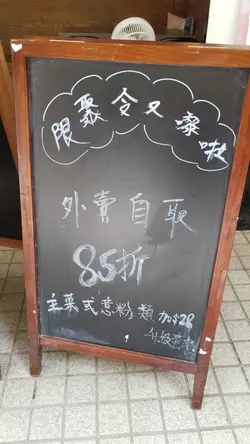 限聚令又嚟啦
外賣自取
85折
主菜式意粉類加$28
升級套餐